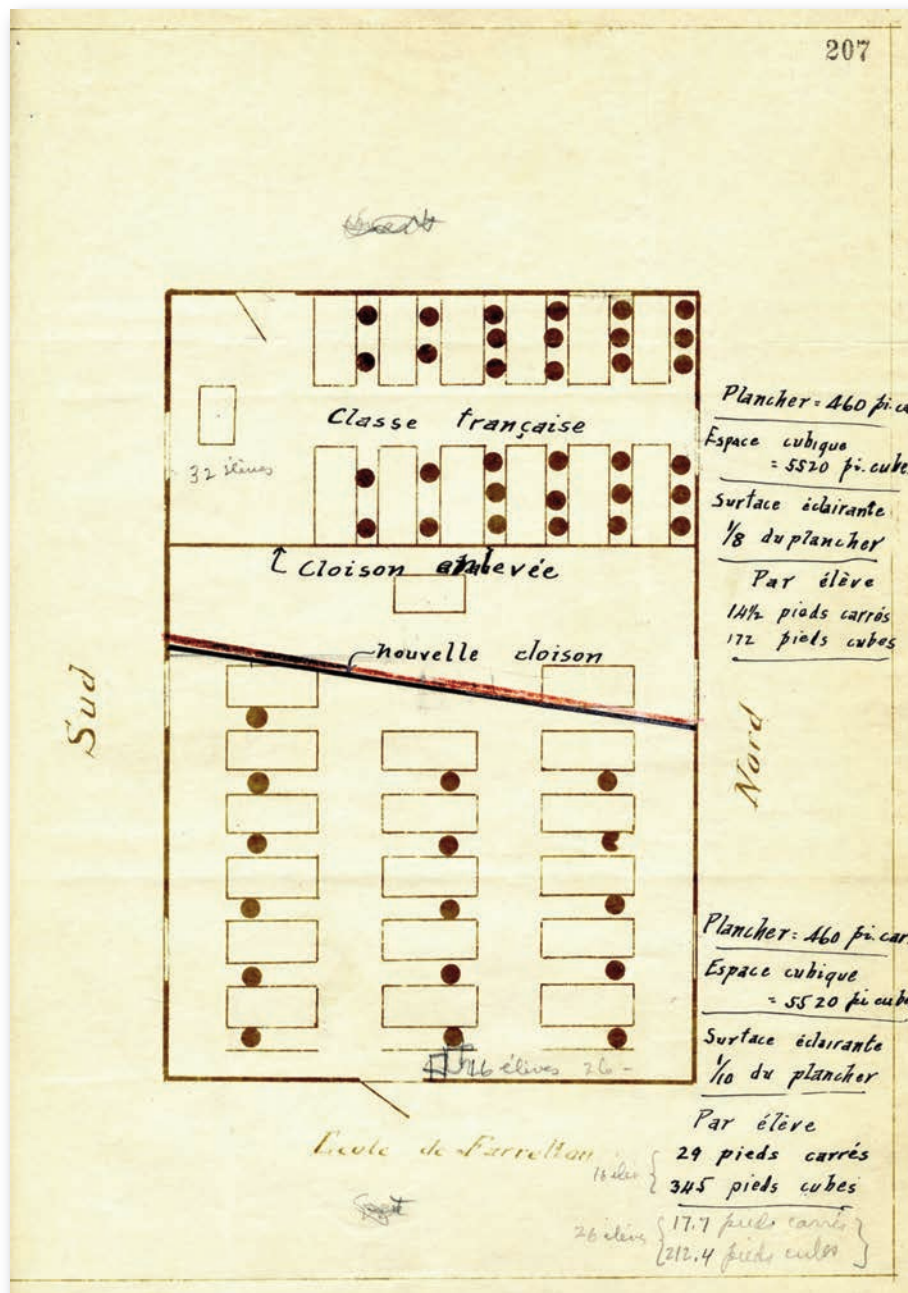 207
Classe française
32 élèves
Cloison enlevée
nouvelle cloison
Sud
Nord
Plancher = 460 pi. ca
Espace cubique
= 5520 pi. cubes
Surface éclairante
1/8 du plancher
Par élève
14½ pieds carrés
172 pieds cubes
Plancher = 460 pi. car
Espace cubique
= 5520 pi cub
Surface éclairante
1/10 du plancher
Par élève
29 pieds carrés
345 pieds cubes
16 élèves 26 -
École de Farrellton
16 élèv
26 élèves
17.7 pieds carrés
212.4 pieds cubes